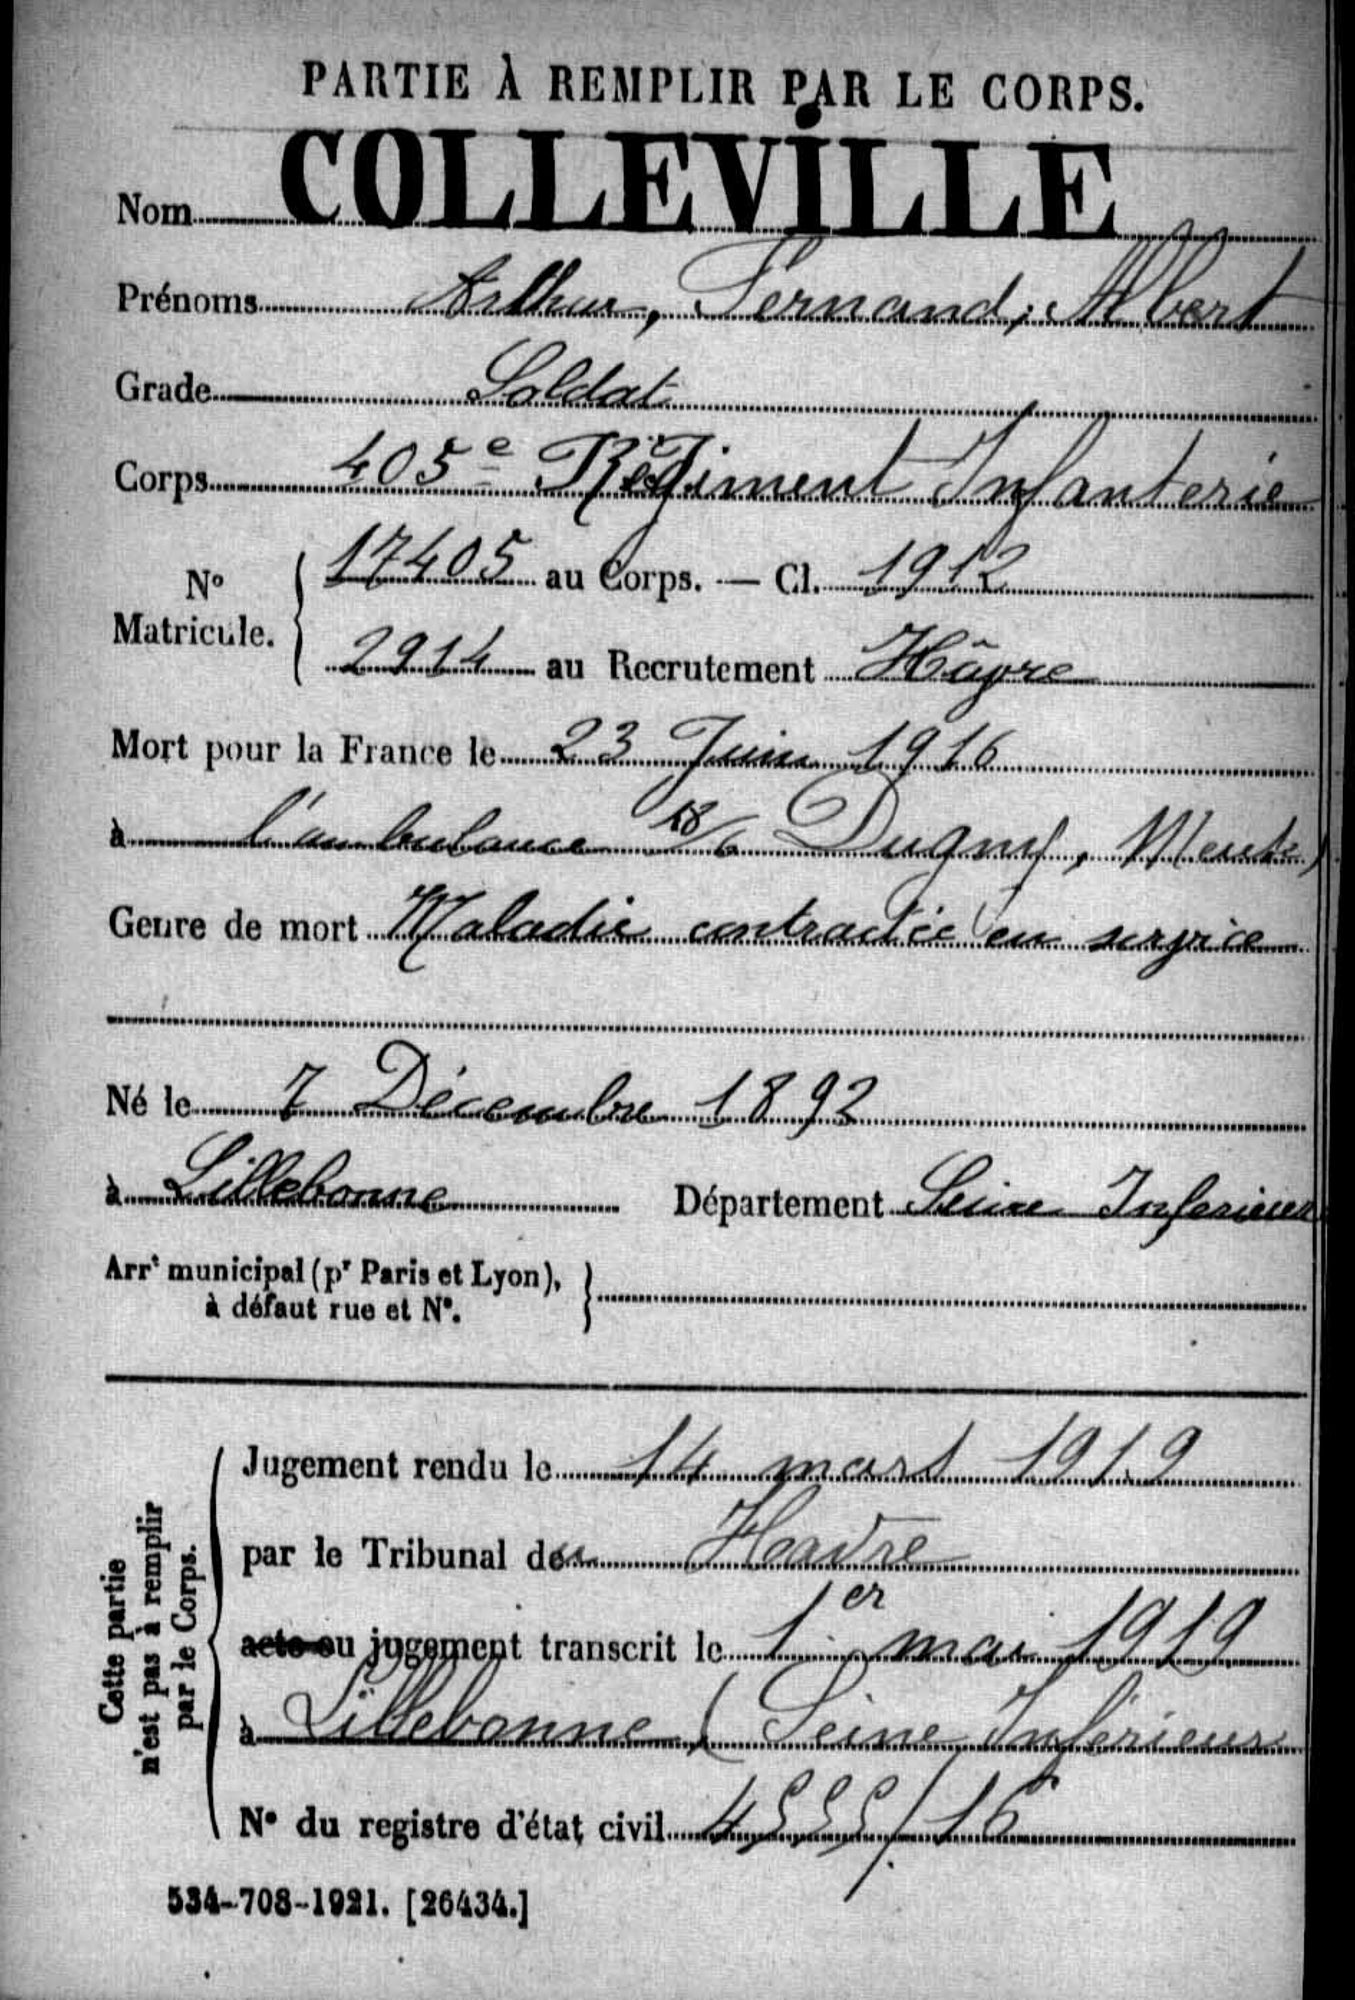 PARTIE À REMPLIR PAR LE CORPS.
Nom COLLEVILLE
Prénoms Arthur, Fernand, Albert
Grade Soldat
Corps 405e Régiment Infanterie
No Matricule. 17405 au Corps. — Cl. 1912
2914 au Recrutement Hâvre
Mort pour la France le 23 Juin 1916
à l'ambulance 18/6 Dugny, Meuse
Genre de mort Maladie contractée en service
Né le 7 Décembre 1892
à Lillebonne Département Seine Inferieure
Arrt municipal (pr Paris et Lyon),
à défaut rue et No.
Cette partie
n'est pas à remplir
par le Corps.
Jugement rendu le 14 mars 1919
par le Tribunal du Havre
acte ou jugement transcrit le 1er mai 1919
à Lillebonne (Seine Inférieure
No du registre d'état civil 4555/16
534-708-1921. [26434.]